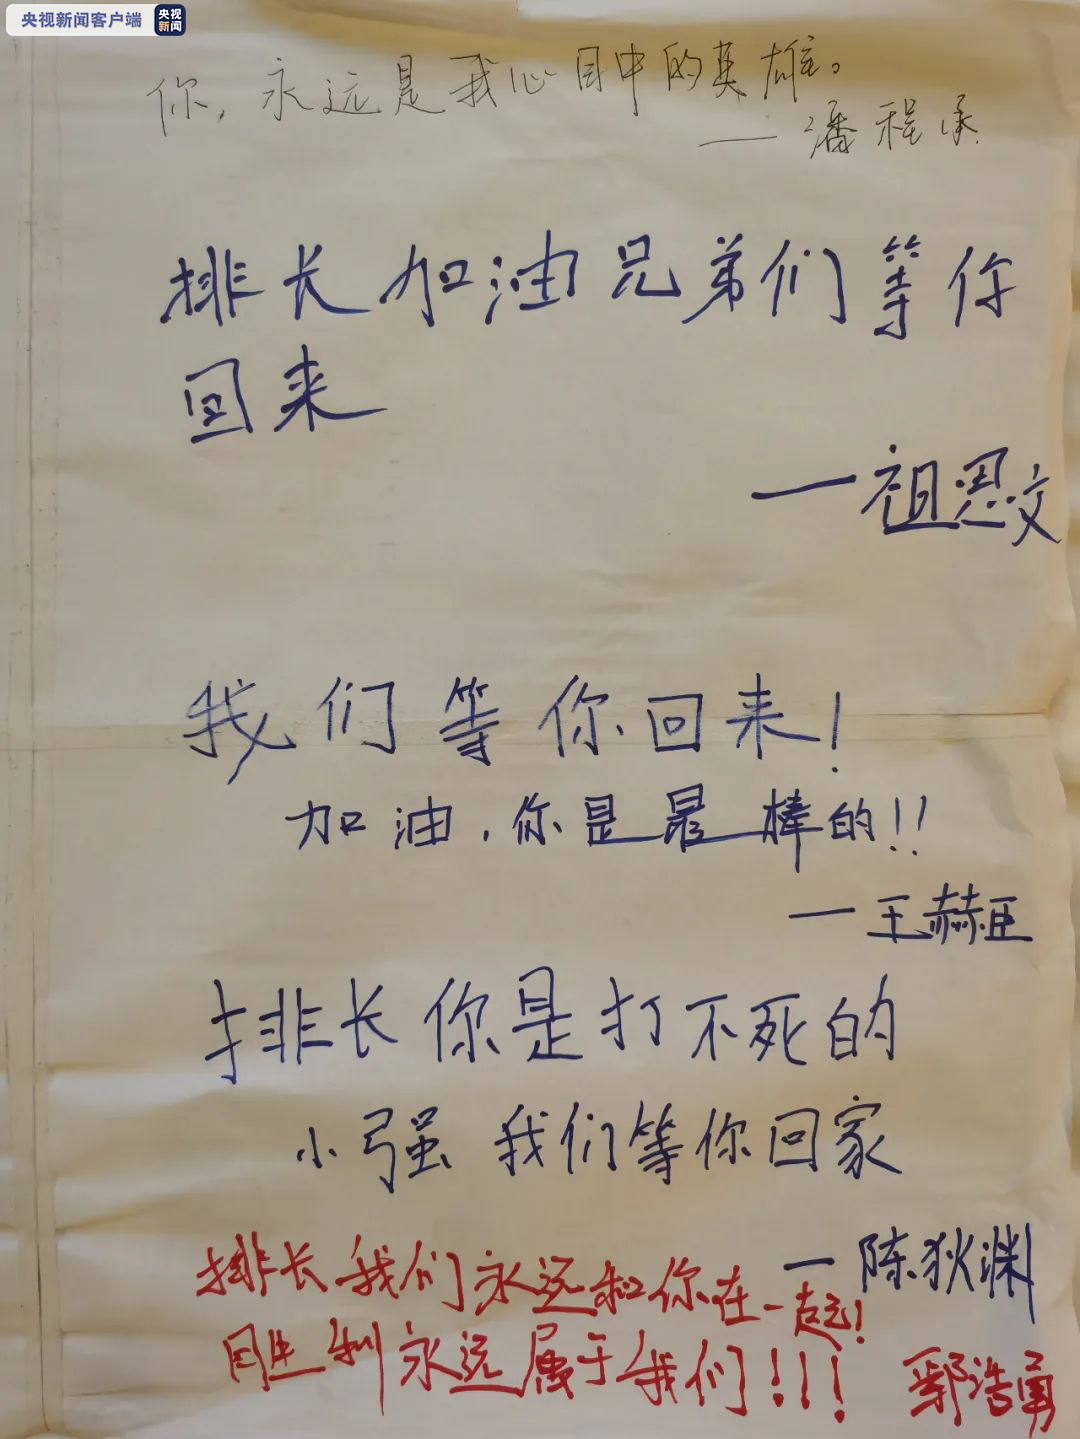 央视新闻客户端
央视新闻
你,永远是我心目中的英雄。
—潘程承
排长加油兄弟们等你
回来
—祖恩文
我们等你回来!
加油,你是最棒的!!
—王赫臣
排长你是打不死的
小强 我们等你回家
—陈狄渊
排长我们永远和你在一起!
胜利永远属于我们!!!
鄢浩勇